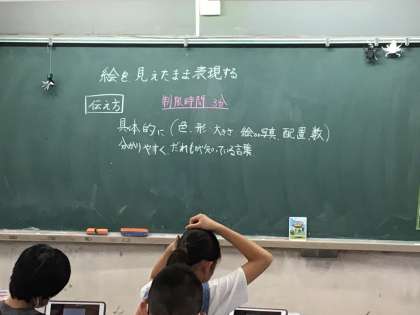 絵を見えたまま表現する
伝え方
制限時間 3分
具体的に(色、形 大きさ 絵or写真 配置、数)
分かりやすく だれもが知っている言葉